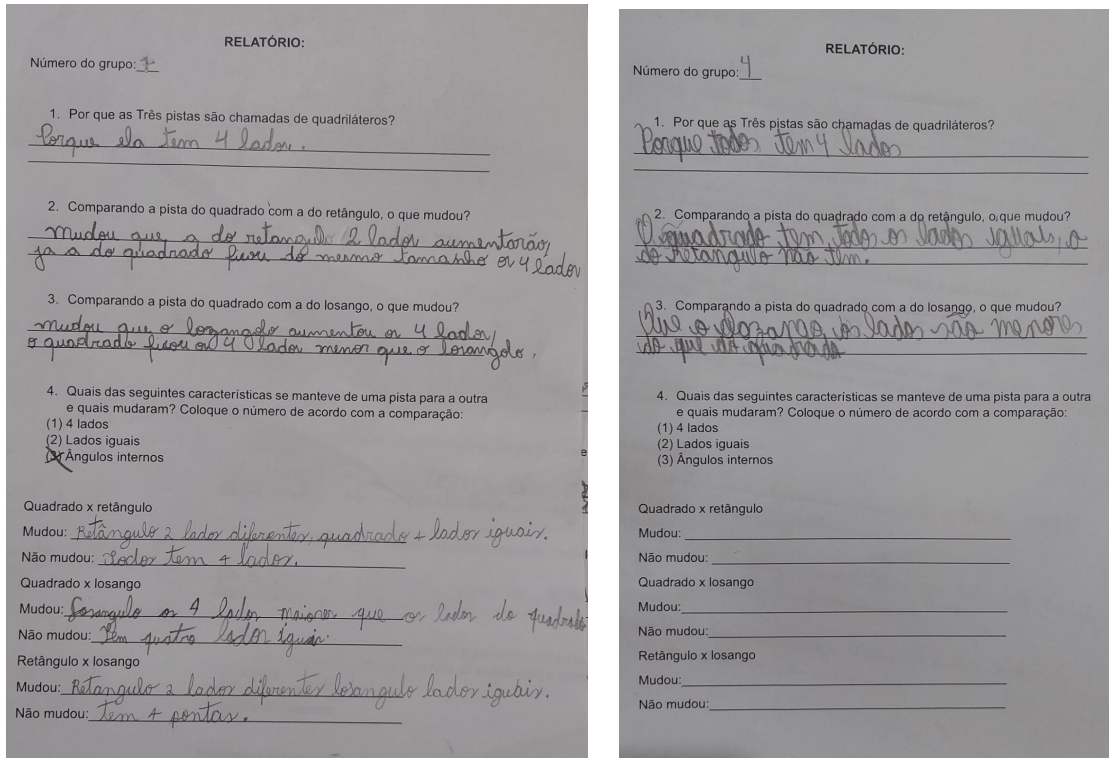 RELATÓRIO:
Número do grupo: 1
1. Por que as Três pistas são chamadas de quadriláteros?
Porque ela tem 4 lados.
2. Comparando a pista do quadrado com a do retângulo, o que mudou?
Mudou que a do retangulo 2 lados aumentorão,
ja a do quadrado ficou do mesmo tamanho os 4 lados
3. Comparando a pista do quadrado com a do losango, o que mudou?
mudou que o lozangado aumentou os 4 lados,
o quadrado ficou os 4 lados menor que o losangolo,
4. Quais das seguintes características se manteve de uma pista para a outra
e quais mudaram? Coloque o número de acordo com a comparação:
(1) 4 lados
(2) Lados iguais
(3) Ângulos internos
Quadrado x retângulo
Mudou: Retângulo 2 lados diferentes, quadrado 4 lados iguais.
Não mudou: Todos tem 4 lados.
Quadrado x losango
Mudou: Losangulo os 4 lados maiores que os lados do quadrado
Não mudou: Tem quatro lados iguais.
Retângulo x losango
Mudou: Retangulo 2 lados diferentes losangulo lados iguais.
Não mudou: Tem 4 pontas.
RELATÓRIO:
Número do grupo: 4
1. Por que as Três pistas são chamadas de quadriláteros?
Porque todos tem 4 lados
2. Comparando a pista do quadrado com a do retângulo, o que mudou?
O quadrado tem todos os lados iguais, o
do retangulo não têm.
3. Comparando a pista do quadrado com a do losango, o que mudou?
Que o lozango, os lados são menores
do que do quadrado
4. Quais das seguintes características se manteve de uma pista para a outra
e quais mudaram? Coloque o número de acordo com a comparação:
(1) 4 lados
(2) Lados iguais
(3) Ângulos internos
Quadrado x retângulo
Mudou:
Não mudou:
Quadrado x losango
Mudou:
Não mudou:
Retângulo x losango
Mudou:
Não mudou: